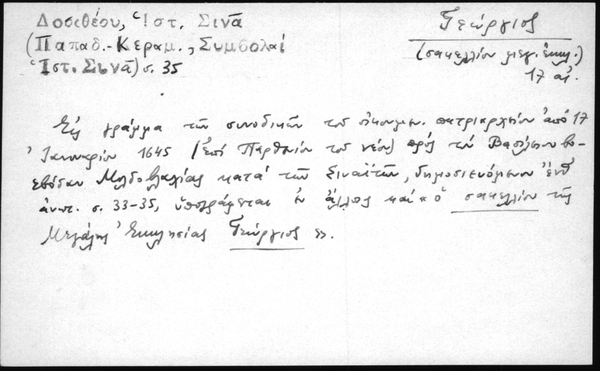 Δοσιθέου, Ἱστ. Σινᾶ
(Παπαδ.-Κεραμ., Συμβολαί
Ἱστ. Σινᾶ) σ. 35
Γεώργιος
(σακελλίου μεγ. ἐκκλ.)
17 αἰ.
Εἰς γράμμα τῶν συνοδικῶν τοῦ οἰκουμεν. πατριαρχείου ἀπό 17
Ἰανουαρίου 1645 (ἐπί Παρθενίου τοῦ νέου) πρός τόν Βασίλειον βο-
εβόδαν Μολδοβλαχίας κατά τῶν Σιναϊτῶν, δημοσιευόμενον ἐνθ'
ἀνωτ. σ. 33-35, ὑπογράφεται ἐν ἄλλοις καί "ὁ σακελλίου τῆς
Μεγάλης Ἐκκλησίας Γεώργιος".